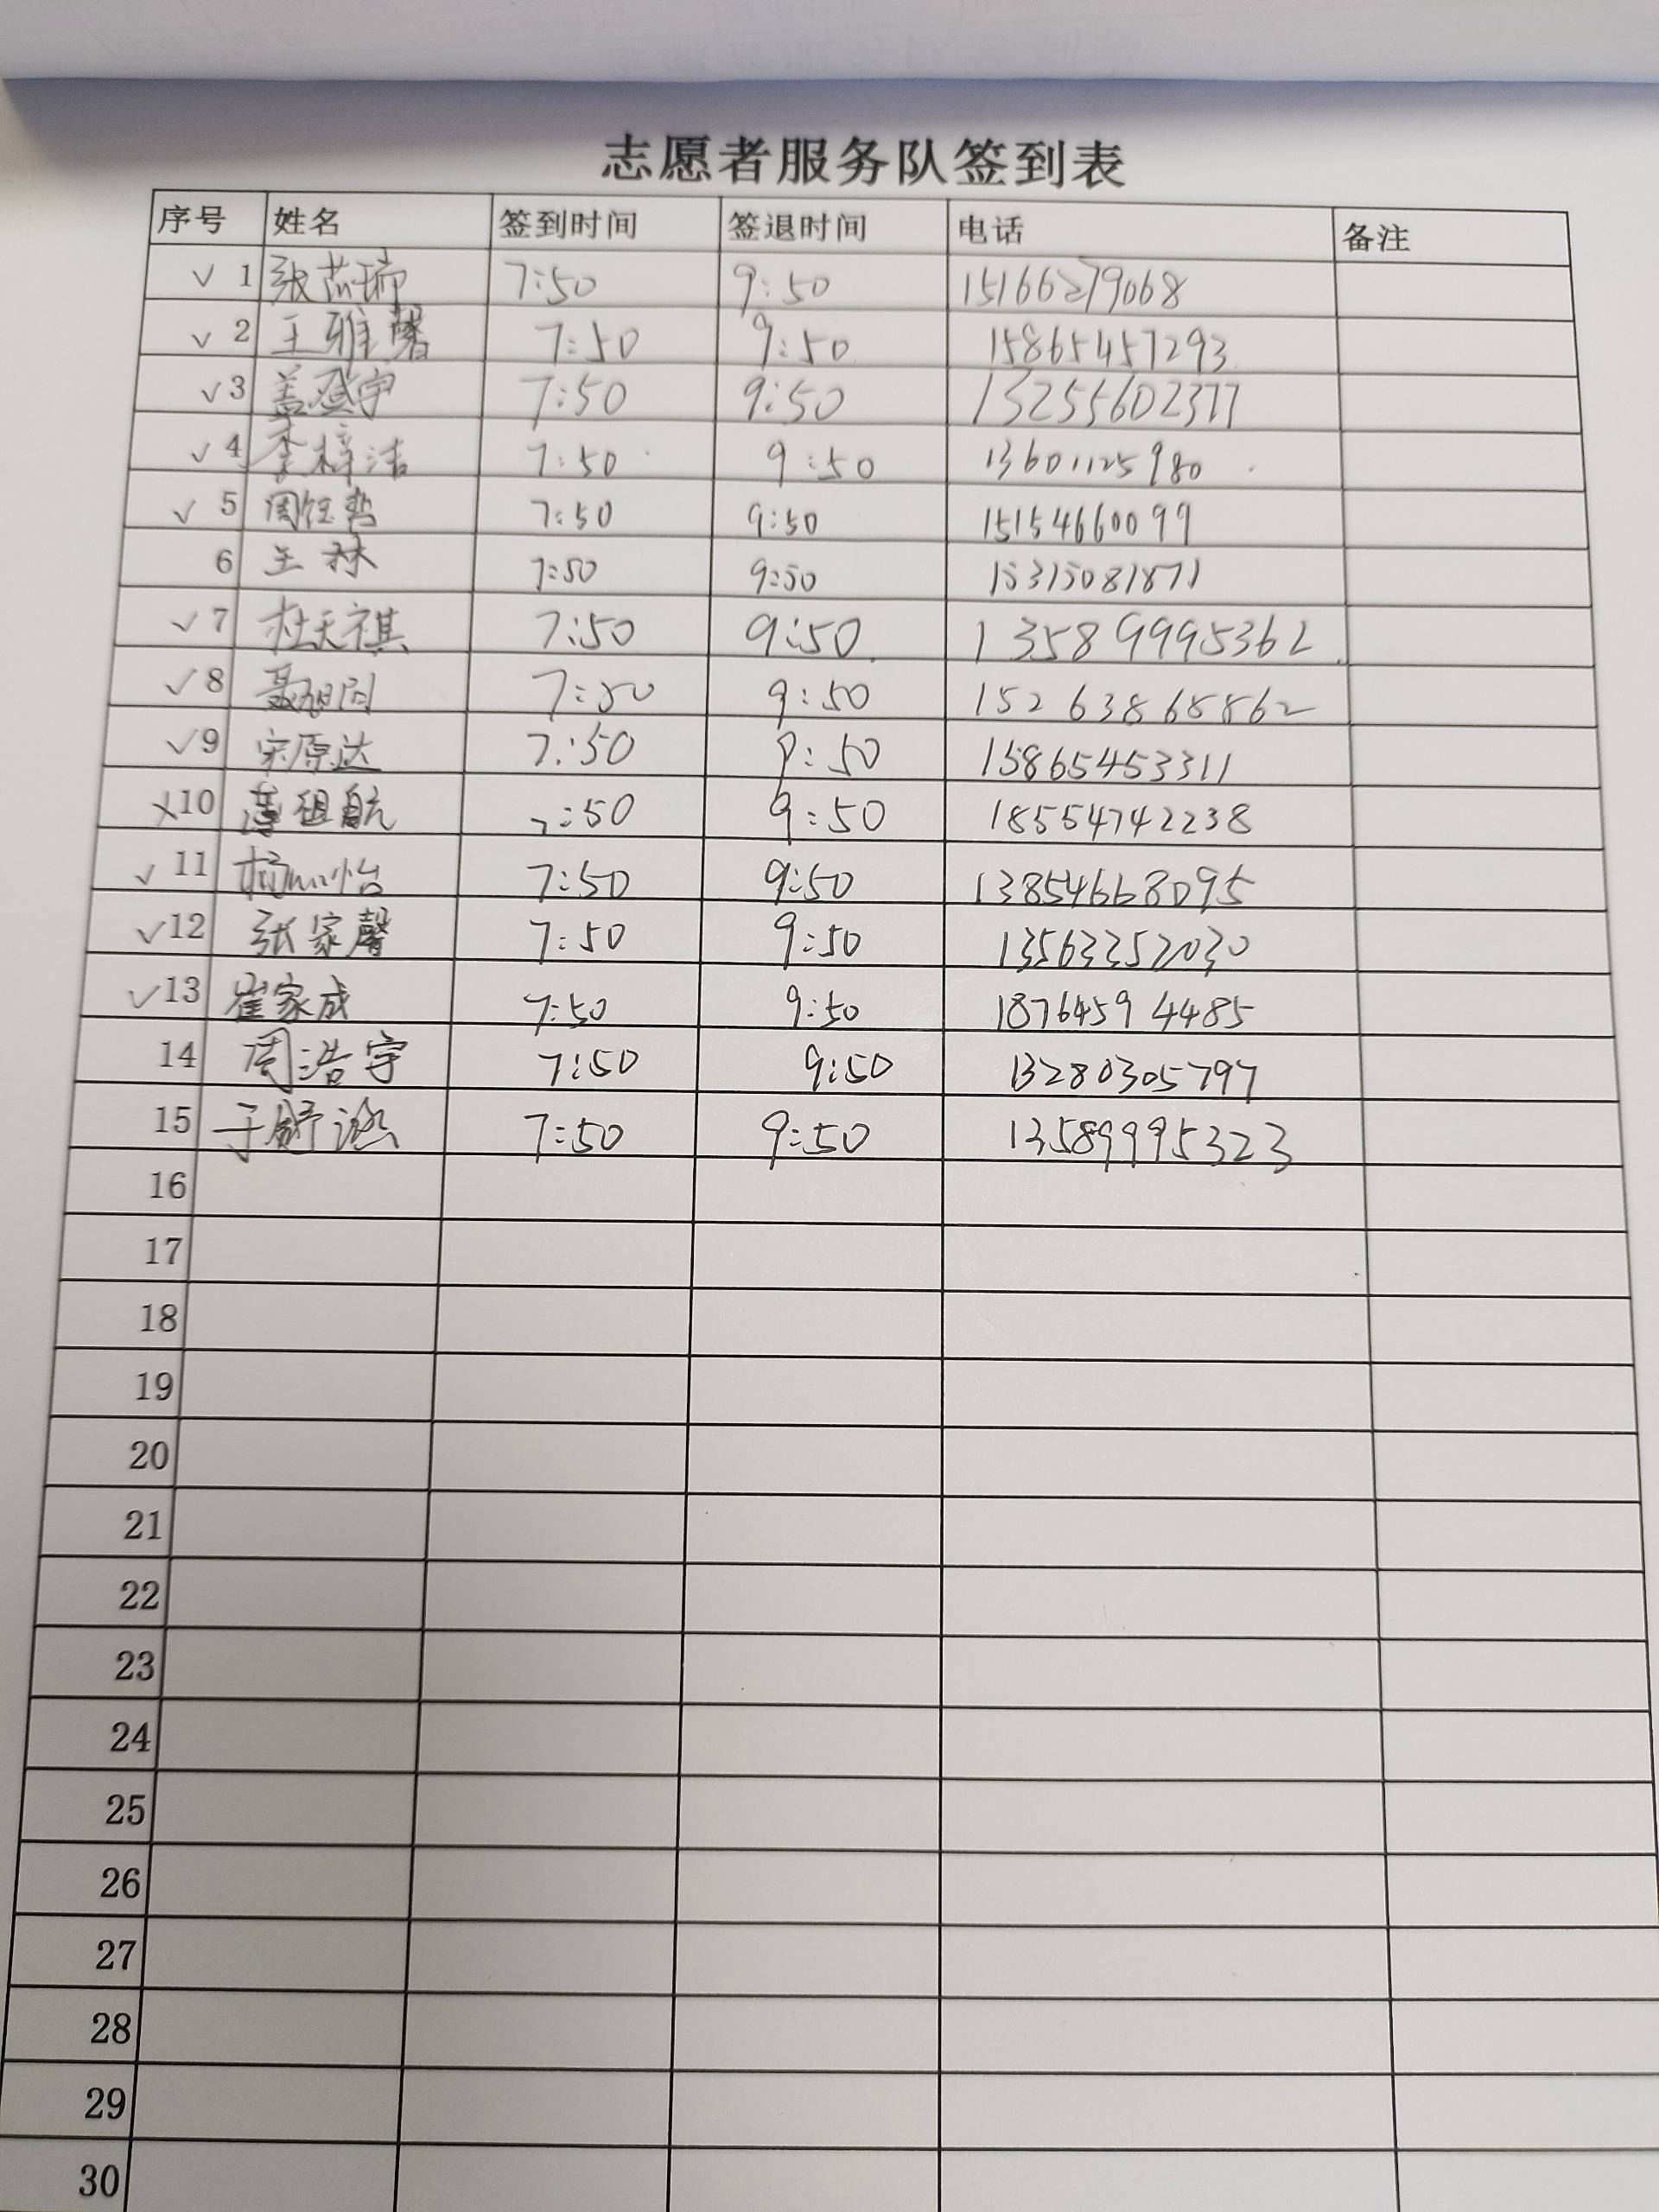 志愿者服务队签到表
序号 姓名 签到时间 签退时间 电话 备注
√ 1 张芯瑞 7:50 9:50 15166279068
√ 2 王雅馨 7:50 9:50 15865457293
√ 3 盖登宇 7:50 9:50 13255602377
√ 4 李梓洁 7:50 9:50 13601125980
√ 5 周钰哲 7:50 9:50 15154660099
6 王林 7:50 9:50 15315081871
√ 7 杜天祺 7:50 9:50 135899995362
√ 8 聂旭闰 7:50 9:50 15263868862
√ 9 宋原达 7:50 9:50 15865453311
10 祖航 7:50 9:50 18554742238
√ 11 杨怡 7:50 9:50 13854668095
√ 12 张家馨 7:50 9:50 13563352030
√ 13 崔家成 7:50 9:50 18764594485
14 周浩宇 7:50 9:50 13280305797
15 于舒涵 7:50 9:50 13589995323
16
17
18
19
20
21
22
23
24
25
26
27
28
29
30